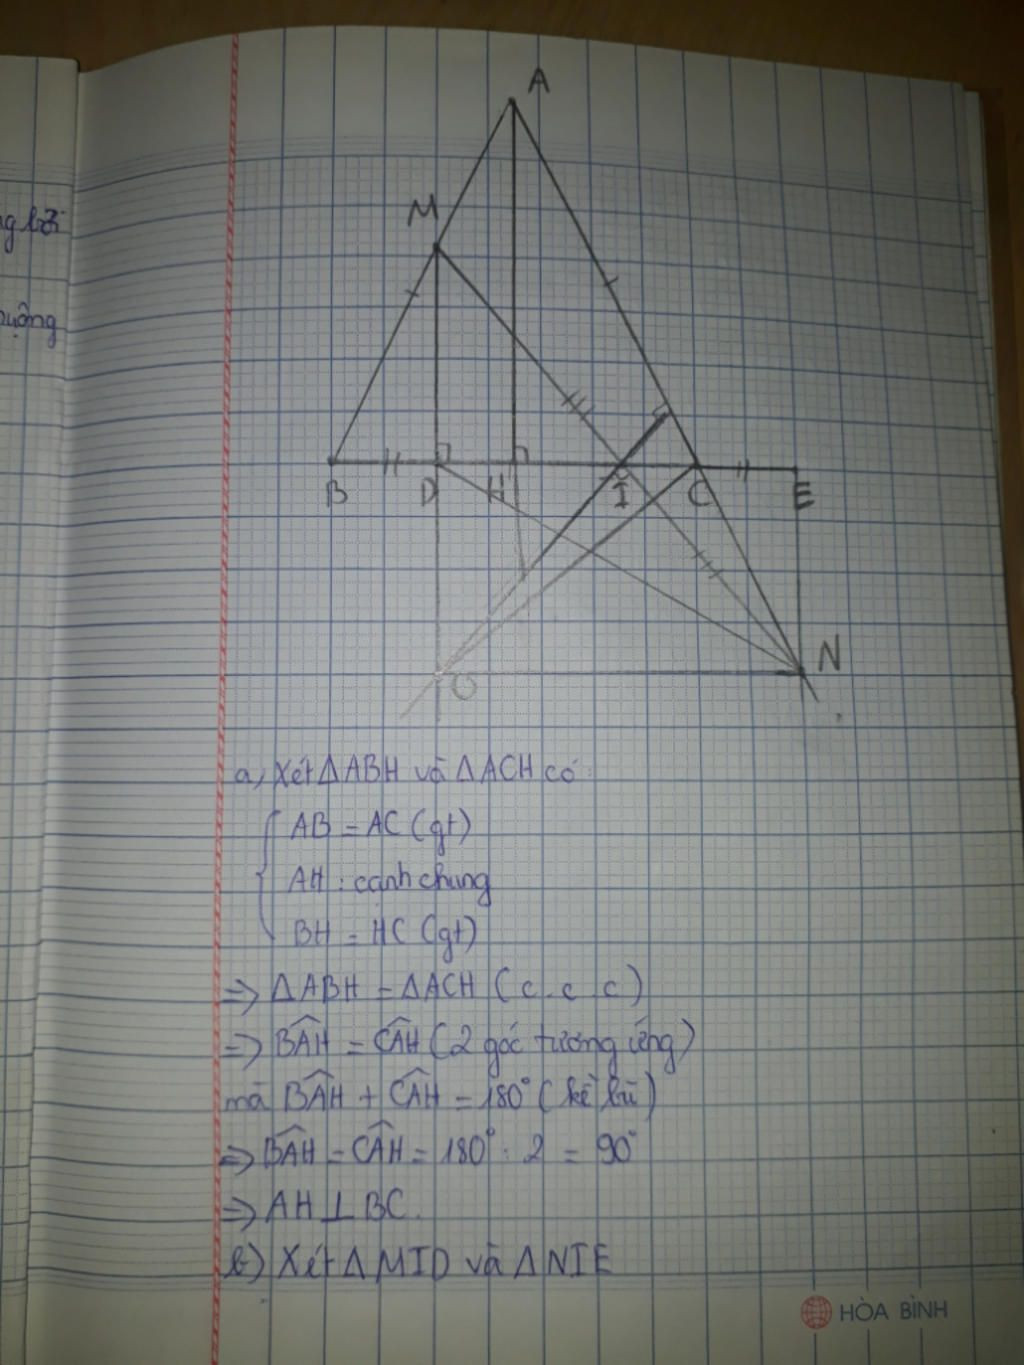 A
M
B
D
H
I
C
E
N
O
a, Xét ΔABH và ΔACH có:
AB = AC (gt)
AH : cạnh chung
BH = HC (gt)
=> ΔABH = ΔACH (c.c.c)
=> BÂH = CÂH (2 góc tương ứng)
mà BÂH + CÂH = 180° (kề bù)
=> BÂH = CÂH = 180° : 2 = 90°
=> AH ⊥ BC.
b) Xét Δ MID và Δ NIE
HÒA BÌNH